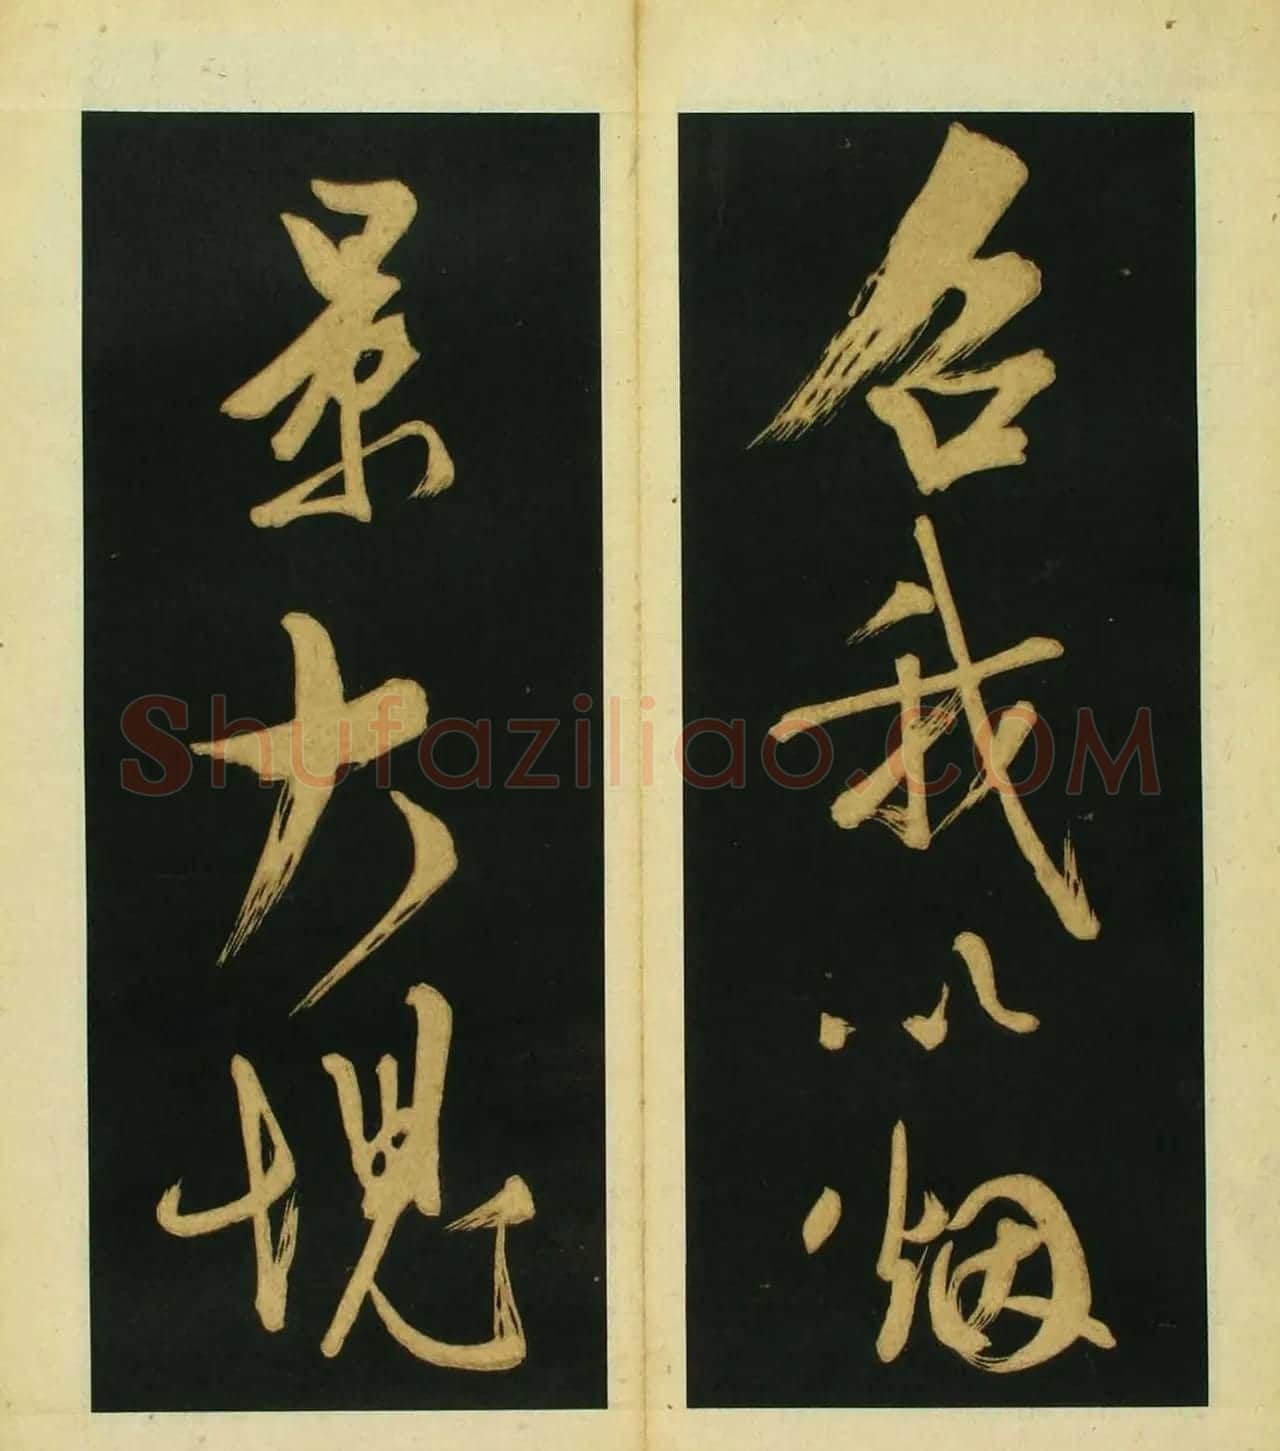 召我以烟
景大塊
Shufaziliao.COM